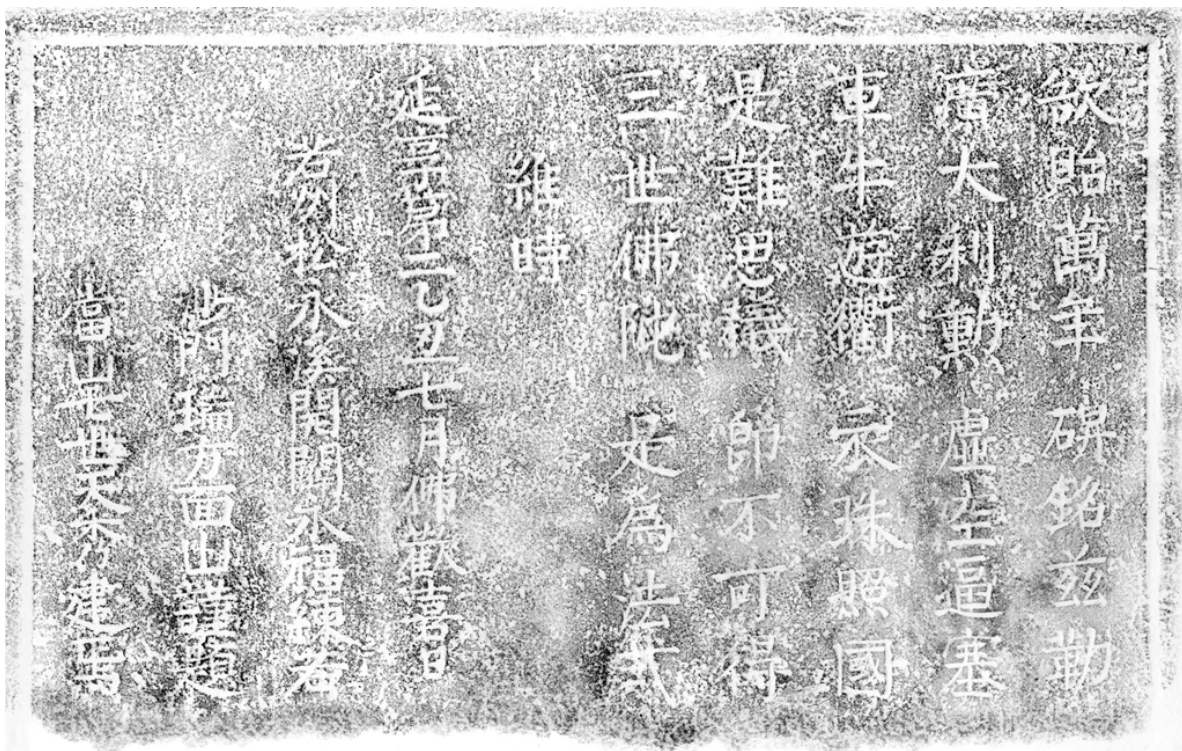 欲貽萬年碑銘茲勒
廣大利勲虚空逼塞
車牛遊衢衣珠照國
是難思議即不可得
三世佛陀是為法式
維時
延享第二乙丑七月佛歡喜日
若州松永溪開闢永福練若
沙門瑞方面山謹題
當山七世天秀建焉